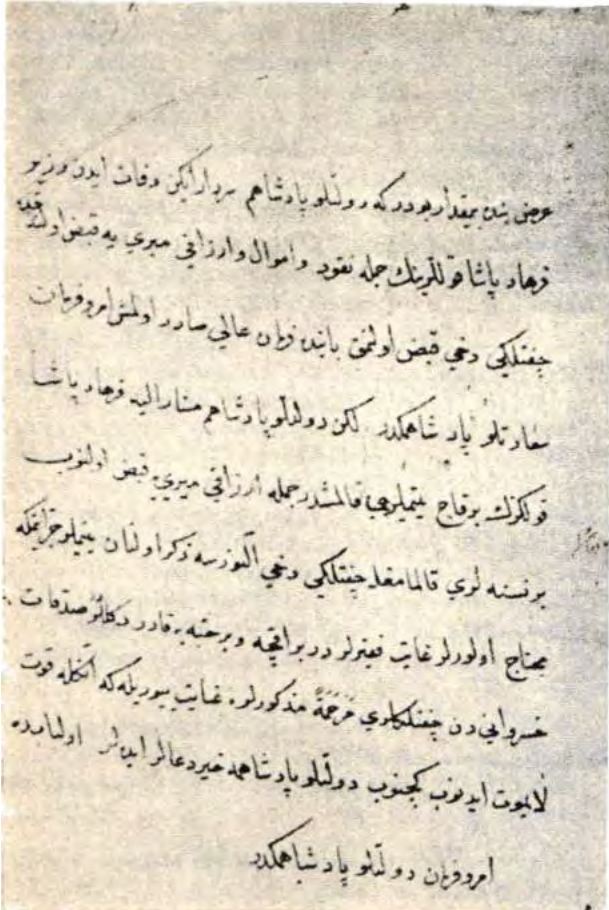 عرض بندۀ بیمقدار بودر که دولتلو پادشاهم سردار ایکن وفات ایدن وزیر
فرهاد پاشا قوللرینك جمله نقود و اموال و ارزاقی میری یه قبض اولندقده
چفتلکی دخی قبض اولنمق بابنده فرمان عالی صادر اولمش امر و فرمان
سعادتلو پادشاهمكدر لکن دولتلو پادشاهم مشار الیه فرهاد پاشا
قولکزك برقاج یتیملری قالمشدر جمله ارزاقی میری یه قبض اولنوب
برنسنه لری قالمامغله چفتلکی دخی النورسه ذکر اولنان یتیملر
محتاج اولورلر غایت فقیرلردر بر اقچه و بر حبه یه قادر دکللردر صدقات
خسروانی دن چفتلکلری مرحمة مذکورلره عنایت بیوریله که انکله قوت
لایموت ایدنوب کچنوب دولتلو پادشاهمه خیر دعالر ایده لر اول بابده
امر و فرمان دولتلو پادشاهمكدر